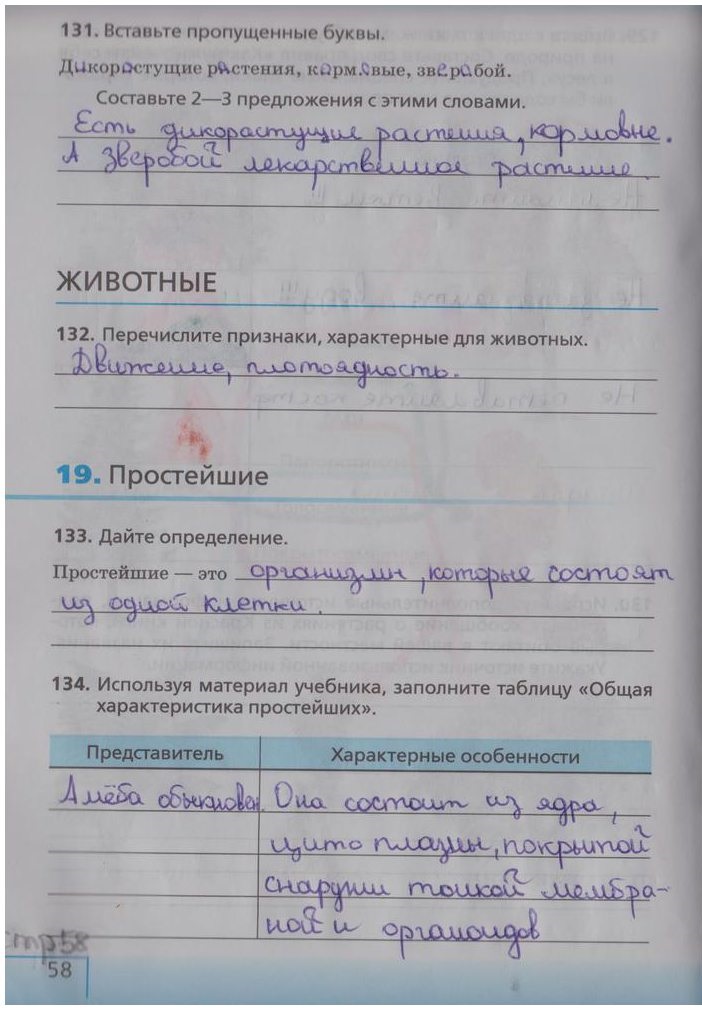 131. Вставьте пропущенные буквы.
Дикорастущие растения, кормовые, зверобой.
Составьте 2—3 предложения с этими словами.
Есть дикорастущие растения, кормовые.
А зверобой лекарственное растение.
ЖИВОТНЫЕ
132. Перечислите признаки, характерные для животных.
Движение, плотоядность.
19. Простейшие
133. Дайте определение.
Простейшие — это организмы, которые состоят
из одной клетки.
134. Используя материал учебника, заполните таблицу «Общая
характеристика простейших».
Представитель Характерные особенности
Амёба обыкновен. Она состоит из ядра,
цитоплазмы, покрытой
снаружи тонкой мембра-
ной и органоидов
стр58
58